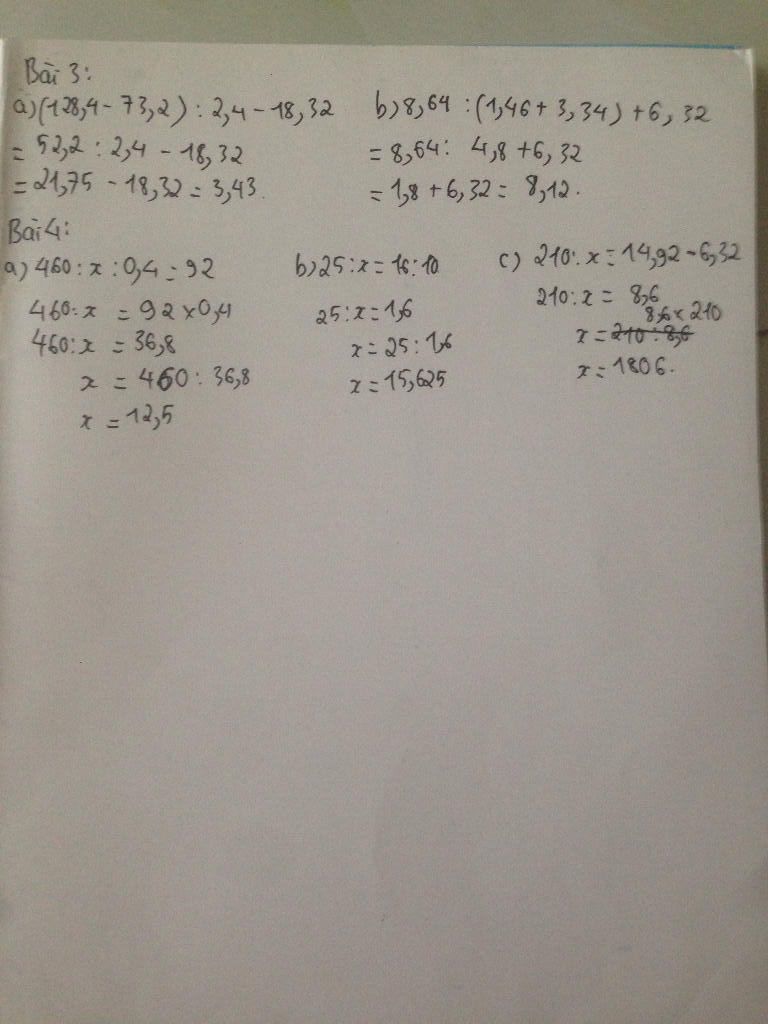 Bài 3:
a) (128,4 - 73,2) : 2,4 - 18,32
= 52,2 : 2,4 - 18,32
= 21,75 - 18,32 = 3,43.
b) 8,64 : (1,46 + 3,34) + 6,32
= 8,64 : 4,8 + 6,32
= 1,8 + 6,32 = 8,12.
Bài 4:
a) 460 : x : 0,4 = 92
460 : x = 92 x 0,4
460 : x = 36,8
x = 460 : 36,8
x = 12,5
b) 25 : x = 16 : 10
25 : x = 1,6
x = 25 : 1,6
x = 15,625
c) 210 : x = 14,92 - 6,32
210 : x = 8,6
8,6 x 210
x = 210 : 8,6
x = 1806.